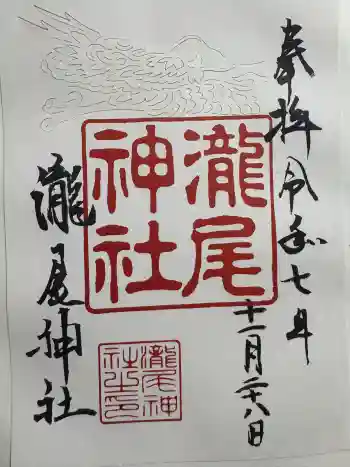 奉拝 令和七年
十一月二十八日
瀧尾
神社
瀧尾神社
瀧尾神
社之印